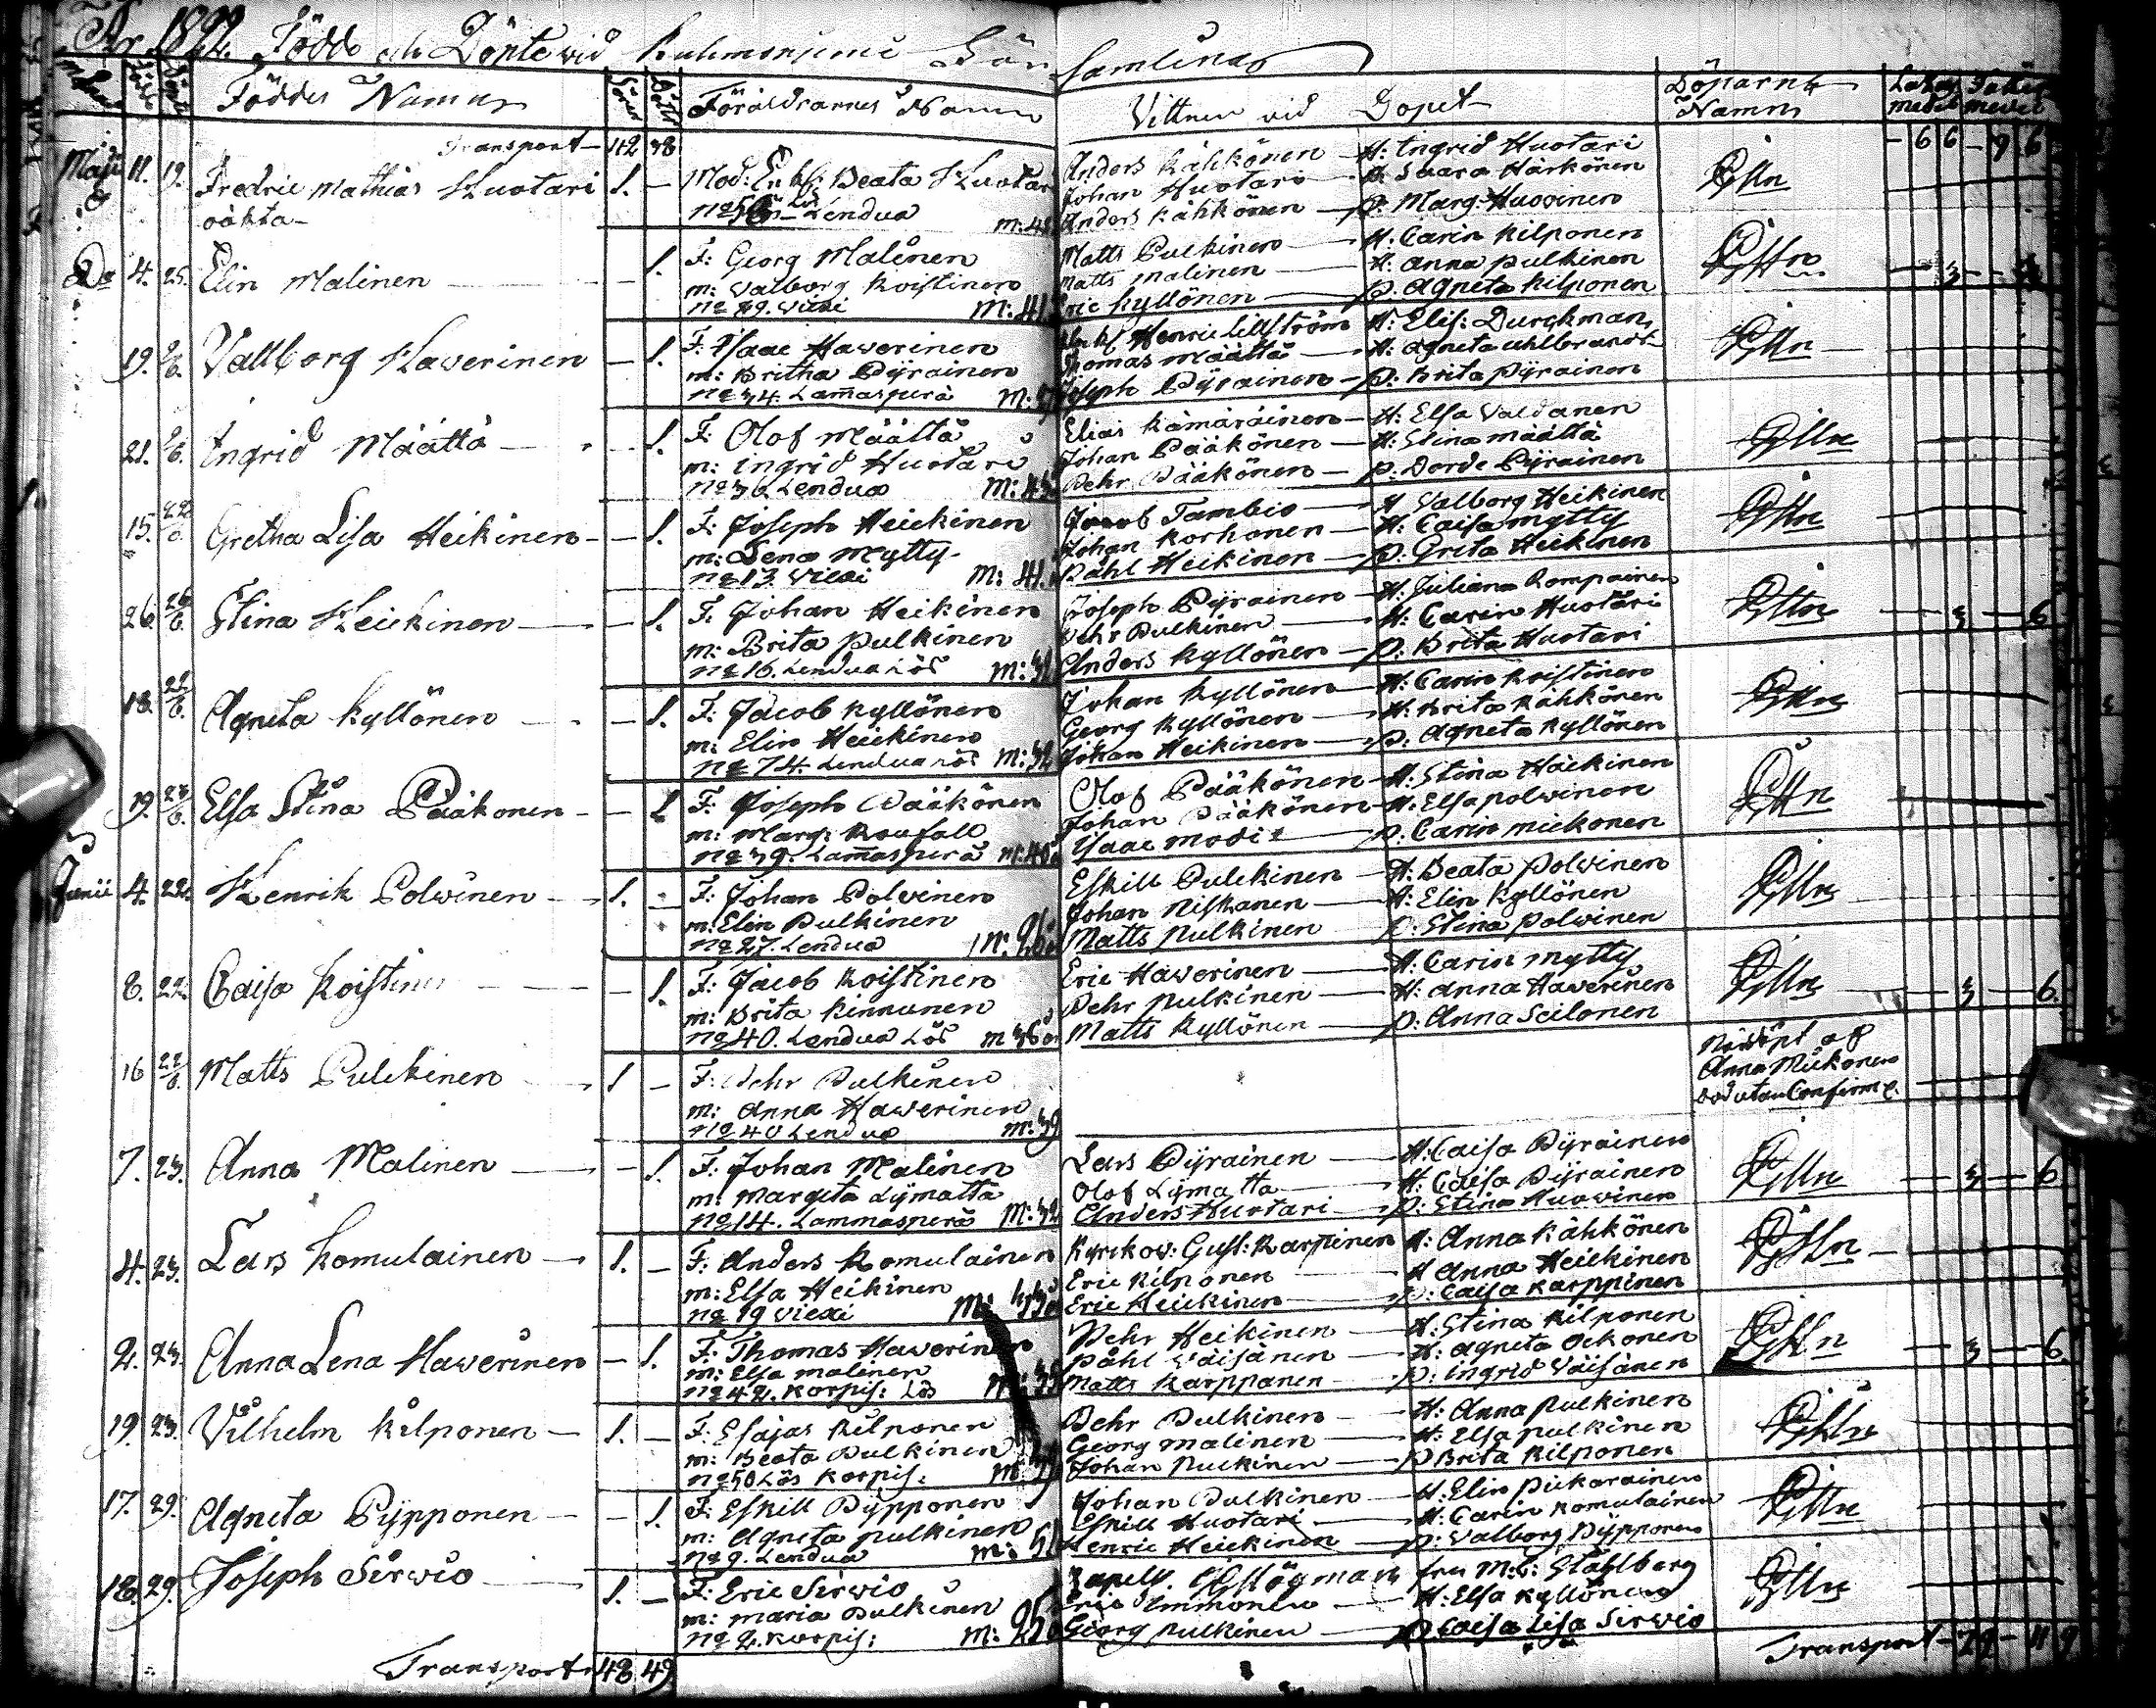 År 1822. Födde och Döpte wid Kuhmoniemi Församling
Föddes Namn Föräldrarnes Namn Vittnen vid Dopet Döparns Namn
Transport 42 38 6 6 9 6
Maji 11. 19. Fredric Mathias Huotari 1. — Mod: Enkf: Beata Huotari Anders Kähkönen — H: Ingrid Huotari
oäkta Johan Huotari — H: Saara Härkönen
Lendua Anders Kähkönen — p: Marg: Huovinen
Do 4. 25. Elin Malinen — 1. F: Georg Malinen Matts Pulkinen — H: Carin Kilponen
m: Valborg Koistinen Matts Malinen — H: Anna Pulkinen
No 29. Viexi M: 41 Eric Kyllönen — p: Agneta Kilponen 3
19. Vallborg Hawerinen — 1. F: Isaac Hawerinen Henric Lillström H: Elis: Durchman
m: Britha Pyrainen Thomas Määttä — H: Agneta Uhlbrandt
No 34. Lammasperä Joseph Pyrainen — p: Brita Pyrainen
21. Ingrid Määttä — 1. F: Olof Määttä Elias Kämäräinen — H: Elsa Valdanen
m: Ingrid Huotari Johan Pääkönen — H: Stina Määttä
No 36 Lendua Pehr Pääkönen — p: Dorde Pyrainen
15. 22/6. Gretha Lisa Heikinen — 1. F: Joseph Heickinen Jacob Tambio — H Valborg Heikinen
m: Lena Mytty Johan Korhonen — H: Caisa Mytty
No 13. Viexi M: 41. Påhl Heikinen — p: Grita Heikinen
26. 26/6. Stina Heickinen — 1. F: Johan Heikinen Joseph Pyrainen — H: Juliana Kompainen
m: Brita Pulkinen Pehr Pulkinen — H: Carin Huotari
No 16. Lendua Lös Anders Kyllönen — p: Brita Huotari 3 — 6
18. 22/6. Agneta Kyllönen — 1. F: Jacob Kyllönen Johan Kyllönen — H: Carin Koistinen
m: Elin Heickinen Georg Kyllönen — H: Brita Kähkönen
No 74. Lendua Lös M: 32 Johan Heikinen — p: Agneta Kyllönen
19. 23/6. Elsa Stina Pääkonen — 1 F: Joseph Pääkönen Olof Pääkönen — H: Stina Häikinen
m: Marg: Johan Pääkönen — H: Elsa Polvinen
No 39. Lammasperä M: 40 Isaac Modit — p: Carin Mickonen
Junii 4. 22. Henrik Polwinen — 1. — F: Johan Polvinen Eskill Pulckinen — H: Beata Polvinen
m: Elin Pulkinen Johan Niskanen — H: Elin Kyllönen
No 27. Lendua M: 26 Matts Pulkinen p: Stina Polwinen
8. 22. Caisa Koistinen — 1. F: Jacob Koistinen Eric Hawerinen — H: Carin Mytty
m: Brita Kinnunen Pehr Pulkinen — H: Anna Hawerinen
No 40. Lendua Lös M 36 Matts Kyllönen — p: Anna Seilonen 3 — 6.
16 22/6. Matts Pulckinen — 1 — F: Pehr Pulkinen Nöddöpt af
m: Anna Hawerinen Anna Mickonen
No 40 Lendua M: 39 död utan Confirme.
7. 23. Anna Malinen — 1. F: Johan Malinen Lars Pyrainen — H: Caisa Pyrainen
m: Margeta Lymatta Olof Lymatta — H: Caisa Pyrainen
No 14. Lammasperä M: 32 Anders Huotari — p: Stina Huovinen 3 — 6
4. 23. Lars Komulainen — 1. — F: Anders Komulainen Kyrckow: Gust: Karpinen H: Anna Kähkönen
m: Elsa Heikinen Eric Kilponen — H Anna Heickinen
No 19 Viexi Eric Heickinen — p: Caisa Karppinen
2. 23. Anna Lena Hawerinen — 1. F: Thomas Hawerinen Pehr Heikinen — H: Stina Kilponen
m: Elsa Malinen Påhl Väisänen — H: Agneta Ockonen
No 42. Korpis: Lös Matts Karppanen — p: Ingrid Väisänen 3 — 6.
19. 23. Vilhelm Kilponen — 1. — F: Esajas Kilponen Pehr Pulkinen — H: Anna Pulkinen
m: Beata Pulkinen Georg Malinen — H: Elsa Pulkinen
No 50 Lös Korpis: Johan Pulckinen — p Brita Kilponen
17. 29. Agneta Pypponen — 1. F: Eskill Pypponen Johan Pulkinen — H: Elin Pickarainen
m: Agneta Pulkinen Eskill Huotari — H: Carin Komulainen
No 9. Lendua Henric Heickinen — p: Valborg Pypponen
18. 29. Joseph Sirwio — 1. — F: Eric Sirvio Capell. Högman fru M: C: Ståhlberg
m: Maria Pulkinen Eric Immonen — H: Elsa Kyllönen
No 2. Korpis: M: 25 Georg Pulkinen — p. Caisa Lisa Sirvio
Transport 48 49 Transport — 79 — 11 9